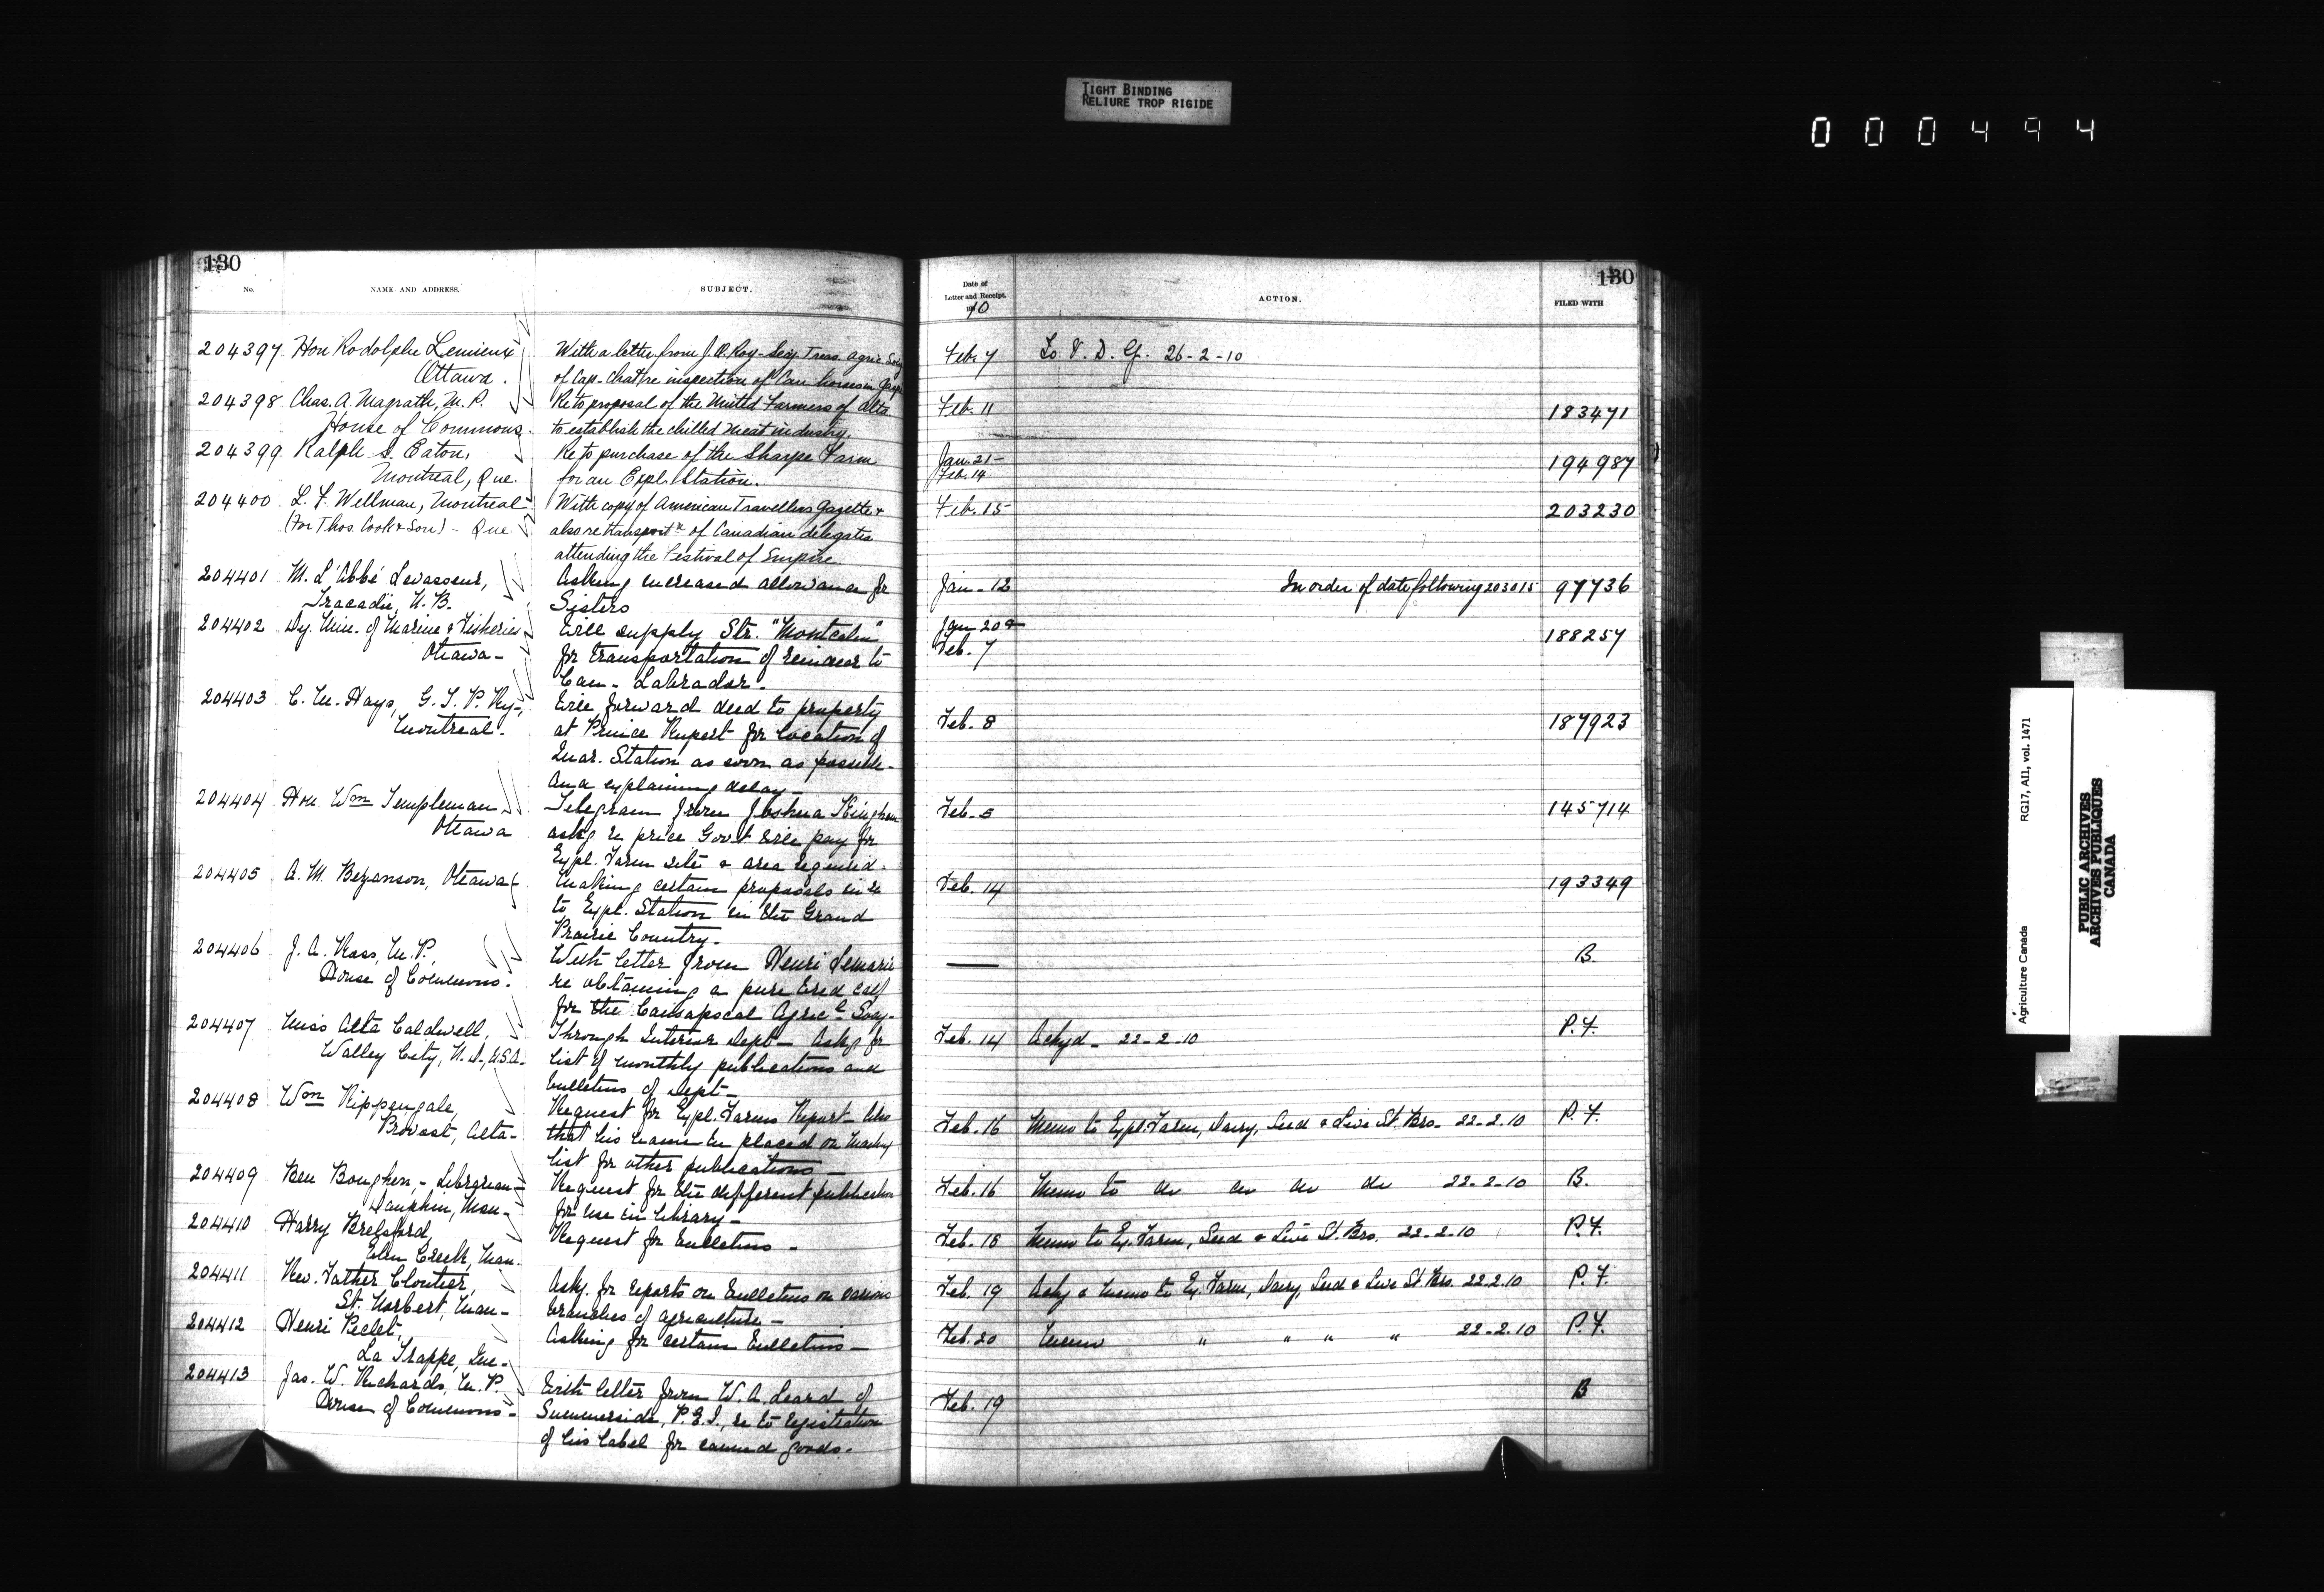 TIGHT BINDING
RELIURE TROP RIGIDE
000494
130
No.
NAME AND ADDRESS.
SUBJECT.
204397 Hon Rodolphe Lemieux
Ottawa.
With a letter from J. A. Roy - Secy. Treas. Agric. Socy
of Cap-Chat re inspection of Can horses in Gaspe
204398 Chas. A. Magrath, M. P.
House of Commons.
Re to proposal of the United Farmers of Alta
to establish the chilled meat industry.
204399 Ralph S. Eaton,
Montreal, Que.
Re to purchase of the Sharpe Farm
for an Expl. Station.
204400 L. F. Wellman, Montreal
(For Thos. Cook & Son) - Que
With copy of American Travellers Gazette &
also re transportn of Canadian delegates
attending the Festival of Empire.
204401 M. L'Abbé Levasseur,
Tracadie, N. B.
Asking increased allowance for
Sisters
204402 Dy. Min. of Marine & Fisheries
Ottawa -
Will supply Str. "Montcalm"
for transportation of reindeer to
Can - Labrador.
204403 C. M. Hays, G. T. P. Ry-,
Montreal.
Will forward deed to property
at Prince Rupert for location of
Quar. Station as soon as possible -
and explaining delay -
204404 Hon. Wm Templeman
Ottawa
Telegram from Joshua Kingham
askg re price Govt will pay for
Expl. Farm site & area required -
204405 A. M. Bezanson, Ottawa
Making certain proposals in re
to Expl. Station in the Grand
Prairie Country -
204406 J. A. Ross, M. P.,
House of Commons.
With letter from Henri Lemarie
re obtaining a pure bred calf
for the Causapscal Agricl Socy -
204407 Miss Alta Caldwell,
Valley City, N. D., U.S.A-
Through Interior Dept - Askg for
list of monthly publications and
bulletins of Dept -
204408 Wm Rippengale,
Provost, Alta -
Request for Expl. Farms Report - Also
that his name be placed on mailing
list for other publications -
204409 Ben Boughen, - Librarian -
Dauphin, Man -
Request for the different publications
for use in library -
204410 Harry Brelsford,
Elm Creek, Man.
Request for bulletins -
204411 Rev. Father Cloutier
St. Norbert, Man -
Askg. for reports or bulletins on various
branches of agriculture -
204412 Henri Peclet,
La Trappe, Que -
Asking for certain bulletins -
204413 Jas. W. Richards, M. P.
House of Commons -
With letter from W. A. Leard of
Summerside, P. E. I., re to registration
of his label for canned goods.
130
Date of
Letter and Receipt.
1910
ACTION.
FILED WITH
Feb. 7 To V. D. G. 26-2-10
Feb. 11 183471
Jan. 21 -
Feb. 14 194987
Feb. 15 203230
Jan - 12 In order of date following 203015 97736
Jan 20 &
Feb. 7 188257
Feb. 8 187923
Feb. 5 145714
Feb. 14 193349
— B.
Feb. 14 Ackgd - 22-2-10 P. F.
Feb. 16 Memo to Expl. Farm, Dairy, Seed & Live St. Brs - 22-2-10 P. F.
Feb. 16 Memo to do do do do 22-2-10 B.
Feb. 18 Memo to Ex. Farm, Seed & Live St. Brs. 22-2-10 P. F.
Feb. 19 Ackg & memo to Ex. Farm, Dairy, Seed & Live St. Brs. 22.2.10 P. F.
Feb. 20 Memo " " " " 22-2.10 P. F.
Feb. 19 B
Agriculture Canada RG17, AII, vol. 1471
PUBLIC ARCHIVES
ARCHIVES PUBLIQUES
CANADA